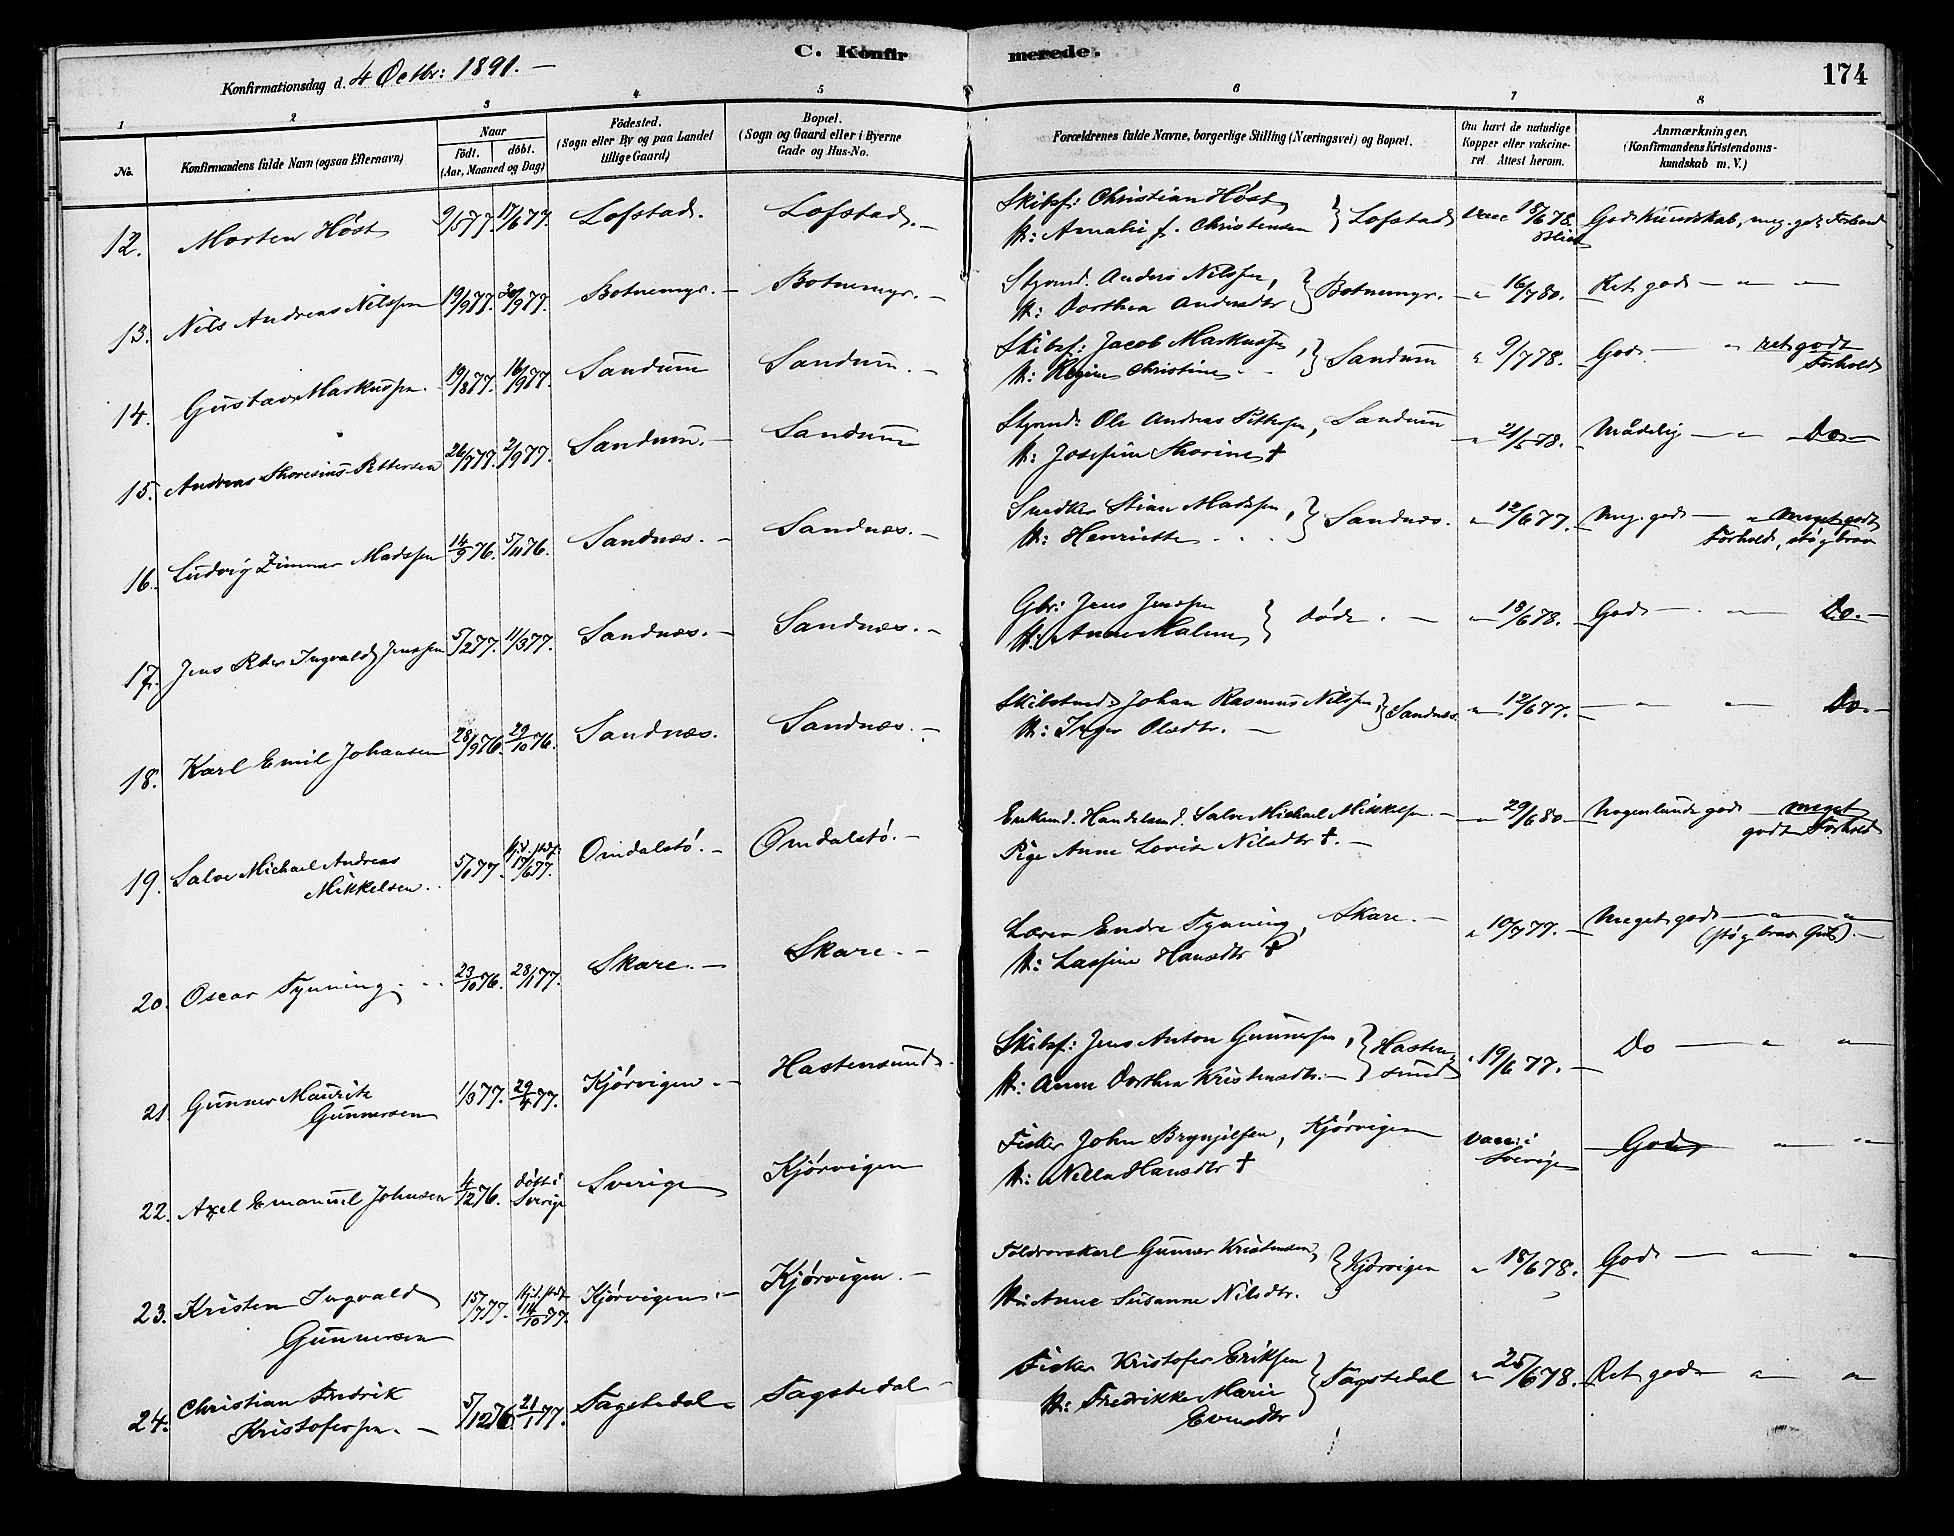 C. Konfirmerede.
174
Konfirmationsdag d. 4 Octbr: 1891. —
1 2 3 4 5 6 7 8
No.
Konfirmandens fulde Navn (ogsaa Efternavn)
Naar
födt. döbt.
(Aar, Maaned og Dag)
Födested.
(Sogn eller By og paa Landet
tillige Gaard)
Bopæl.
(Sogn og Gaard eller i Byerne
Gade og Hus-No.
Forældrenes fulde Navne, borgerlige Stilling (Næringsvei) og Bopæl.
Om havt de naturlige
Kopper eller vakcine-
ret Attest herom.
Anmærkninger.
(Konfirmandens Kristendoms-
kundskab m. V.)
12. Morten Höst 9/5 77. 17/6 77. Lofstad. Lofstad. —
Skibsf: Christian Höst
H: Amalie f. Christensen } Lofstad vacc 18/6 78. God Kundskab, meg. godt Forhold
13. Nils Andreas Nilssen 19/9 77. 30/9 77. Botnemyr. — Botnemyr. —
Styrmd. Anders Nilssen,
H: Dorthea Andersdtr } Botnemyr. — " 16/7 80. — Ret god — " —
14. Gustav Markussen. 19/8 77. 16/9 77. Sandum Sandum. —
Skibsf: Jacob Markussen,
H: Regine Christine } Sandum " 9/7 78. God — " ret godt
Forhold
15. Andreas Thoresius Pettersen 26/7 77. 2/9 77. Sandum. — Sandum
Styrmd: Ole Andreas Pettersen, Sandum
H: Josefine Thorine † " 21/5 78. Mådelig — " — Do —
16. Ludvig Zimmer Madssen 14/9 76. 5/11 76. Sandnæs. — Sandnæs. —
Snedker Stian Madssen,
H: Henriette } Sandnæs. " 12/6 77. Meg. god — " meget godt
Forhold, stø g brav
17. Jens Peder Ingvald Jenssen 5/2 77. 11/3 77. Sandnæs. — Sandnæs. —
Gbr: Jens Jenssen
H: Anne Malene } døde. — " 18/6 78. God — " — Do. —
18. Karl Emil Johansen 28/9 76. 29/10 76. Sandnæs. Sandnæs. —
Skibstmd: Johan Rasmus Nilssen,
H: Inger Olsdtr. — } Sandnæs. " 12/6 77. — " — " — Do. —
19. Salve Michael Andreas
Mikkelsen. 5/1 77. Hjd. stadf: 17/6 77. Omdalstö. — Omdalstö. —
Enkemd. Handelsmd. Salve Michael Mikkelsen. —
Pige Anne Lovise Nilsdtr †. — " 29/6 80 — Nogenlunde god — meget
godt Forhold
20. Oscar Tynning. 23/10 76. 28/1 77. Skare. — Skare. —
Lærer Endre Tynning, Skare. —
H: Lassine Hansdtr † " 10/7 77. — Meget god — " — "
(stø g brav Gut). —
21. Gunner Mauritz
Gunnersen 1/3 77. 29/4 77. Kjörvigen — Hastensund.
Skibsf: Jens Anton Gunnersen,
H: Anne Dorthea Kristensdtr. — } Hasten-
sund " 19/6 77. — Do — " "
22. Axel Emanuel Johnsen 4/12 76. döbt i
Sverige Sverige Kjörvigen
Fisker John Brynjilsen, Kjörvigen
H: Nella Hansdtr † vacc: i
Sverige — God " "
23. Kristen Ingvald
Gunnersen 15/7 77. Hjd. stadf: 14/10 77. Kjörvigen. — Kjörvigen. —
Toldrorskarl Gunner Kristensen,
H: Anne Susanne Nilsdtr. } Kjörvigen " 18/6 78. God — " — "
24. Christian Fredrik
Kristofersen. — 5/12 76. 21/1 77. Tagstedal Tagstedal —
Fisker Kristofer Eriksen
H: Fredrikke Marie
Evensdtr } Tagstedal " 25/6 78. Ret god — " "